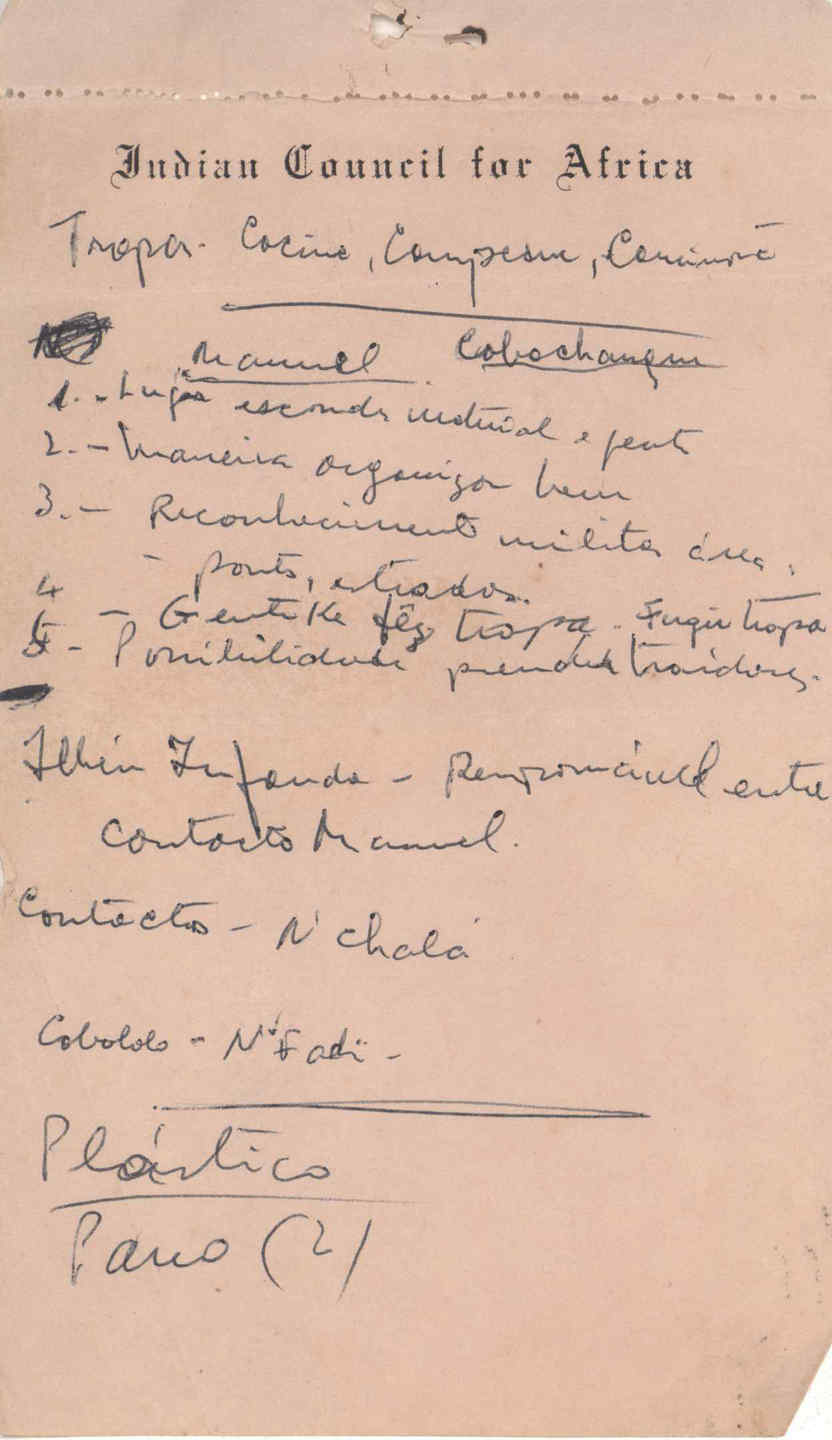 Indian Council for Africa
Tropa - Cacine, Campeane, Cameconde
Manuel Cabochanque
1. - Lugar esconder material e gente
2. - Maneira organizar bem
3. - Reconhecimento militar área,
- ponts, estradas.
4 - Gente ke fêz tropa - Fugir tropa
5 - Possibilidade prender traidores.
Infanda - Responsável entre
contacto Manuel.
Contactos - N'chalá
Cabolol - N'Fadi -
Plástico
Pano (2)